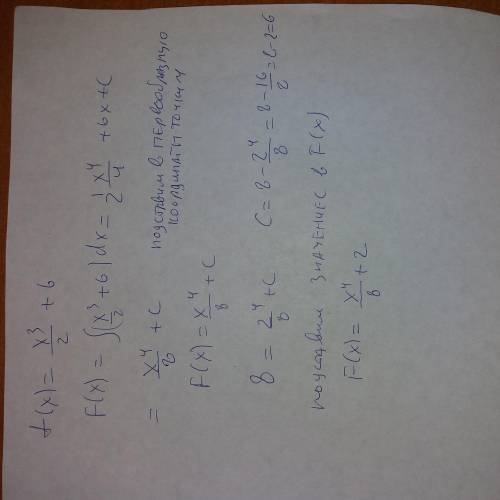 f(x) = x³/2 + 6
F(x) = ∫(x³/2 + 6)dx = 1/2 x⁴/4 + 6x + C
= x⁴/8 + C подставим в первообразную
координаты точки м
F(x) = x⁴/8 + C
8 = 2⁴/8 + C C = 8 - 2⁴/8 = 8 - 16/8 = 8 - 2 = 6
подставим значение с в F(x)
F(x) = x⁴/8 + 2